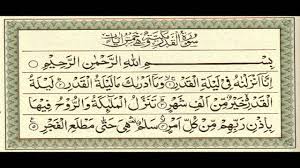 سُورَةُ الْقَدْرِ مَكِّيَّةٌ وَهِيَ خَمْسُ
بِسْمِ اللهِ الرَّحْمٰنِ الرَّحِيْمِ
اِنَّاۤ اَنْزَلْنٰهُ فِيْ لَيْلَةِ الْقَدْرِ ۝ وَمَاۤ اَدْرٰىكَ مَا لَيْلَةُ الْقَدْرِ ۝ لَيْلَةُ
الْقَدْرِ خَيْرٌ مِّنْ اَلْفِ شَهْرٍ ۝ تَنَزَّلُ الْمَلٰٓئِكَةُ وَالرُّوْحُ فِيْهَا
بِاِذْنِ رَبِّهِمْ مِّنْ كُلِّ اَمْرٍ ۝ سَلٰمٌ هِيَ حَتّٰى مَطْلَعِ الْفَجْرِ ۝